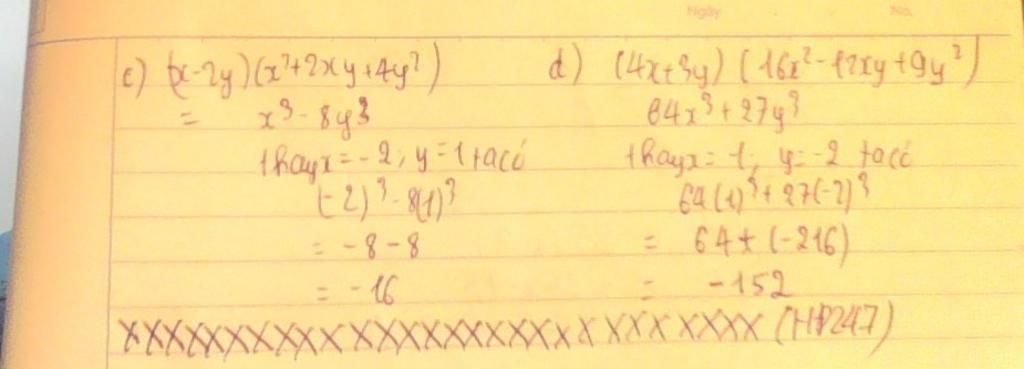 Ngày No.
c) (x-2y)(x²+2xy+4y²)
= x³ - 8y³
thay x = -2; y = 1 ta có
(-2)³ - 8(1)³
= -8 - 8
= -16
d) (4x+3y) (16x² - 12xy + 9y²)
64x³ + 27y³
thay x = 1; y = -2 ta có
64(1)³ + 27(-2)³
= 64 + (-216)
= -152
XXXXXXXXXXXXXXXXXXXXXXXXXX (HP247)